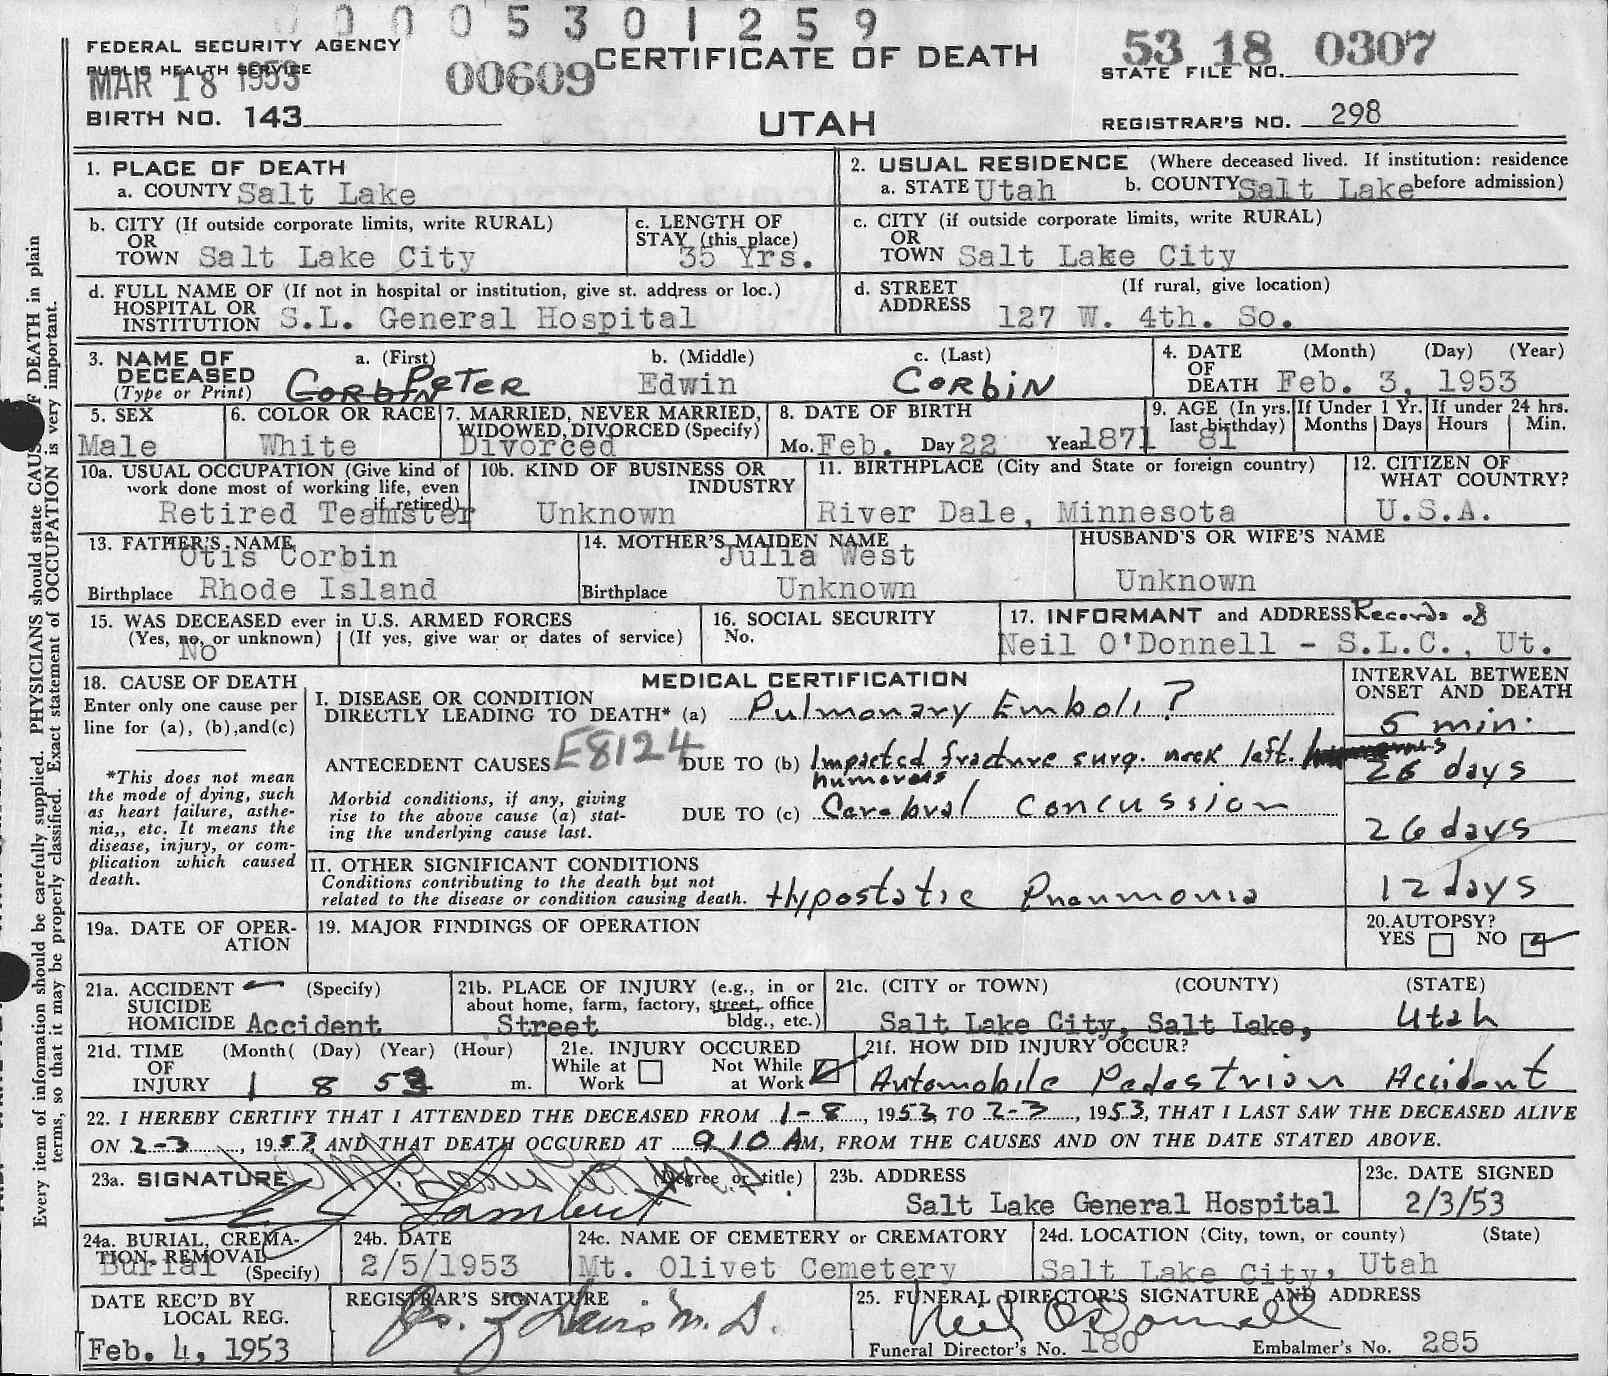 0005301259
FEDERAL SECURITY AGENCY
PUBLIC HEALTH SERVICE
MAR 18 1953
00609
CERTIFICATE OF DEATH
53 18 0307
STATE FILE NO.
BIRTH NO. 143
UTAH
REGISTRAR'S NO. 298
1. PLACE OF DEATH
a. COUNTY Salt Lake
2. USUAL RESIDENCE (Where deceased lived. If institution: residence
a. STATE Utah b. COUNTY Salt Lake before admission)
b. CITY (If outside corporate limits, write RURAL)
OR
TOWN Salt Lake City
c. LENGTH OF
STAY (this place)
35 Yrs.
c. CITY (if outside corporate limits, write RURAL)
OR
TOWN Salt Lake City
d. FULL NAME OF (If not in hospital or institution, give st. address or loc.)
HOSPITAL OR
INSTITUTION S.L. General Hospital
d. STREET (If rural, give location)
ADDRESS 127 W. 4th. So.
3. NAME OF
DECEASED
(Type or Print)
a. (First)
Corbin Peter
b. (Middle)
Edwin
c. (Last)
Corbin
4. DATE (Month) (Day) (Year)
OF
DEATH Feb. 3, 1953
5. SEX
Male
6. COLOR OR RACE
White
7. MARRIED, NEVER MARRIED,
WIDOWED, DIVORCED (Specify)
Divorced
8. DATE OF BIRTH
Mo. Feb. Day 22 Year 1871
9. AGE (In yrs.
last birthday)
81
If Under 1 Yr.
Months Days
If under 24 hrs.
Hours Min.
10a. USUAL OCCUPATION (Give kind of
work done most of working life, even
if retired)
Retired Teamster
10b. KIND OF BUSINESS OR
INDUSTRY
Unknown
11. BIRTHPLACE (City and State or foreign country)
River Dale, Minnesota
12. CITIZEN OF
WHAT COUNTRY?
U.S.A.
13. FATHER'S NAME
Otis Corbin
Birthplace Rhode Island
14. MOTHER'S MAIDEN NAME
Julia West
Birthplace Unknown
HUSBAND'S OR WIFE'S NAME
Unknown
15. WAS DECEASED ever in U.S. ARMED FORCES
(Yes, no, or unknown) (If yes, give war or dates of service)
No
16. SOCIAL SECURITY
No.
17. INFORMANT and ADDRESS Records of
Neil O'Donnell - S.L.C., Ut.
18. CAUSE OF DEATH
Enter only one cause per
line for (a), (b),and(c)
*This does not mean
the mode of dying, such
as heart failure, asthe-
nia,, etc. It means the
disease, injury, or com-
plication which caused
death.
MEDICAL CERTIFICATION
I. DISEASE OR CONDITION
DIRECTLY LEADING TO DEATH* (a) Pulmonary Emboli?
ANTECEDENT CAUSES E8124 DUE TO (b) Impacted fracture surg. neck left.
humerous
Morbid conditions, if any, giving
rise to the above cause (a) stat-
ing the underlying cause last.
DUE TO (c) Cerebral Concussion
INTERVAL BETWEEN
ONSET AND DEATH
5 min.
26 days
26 days
II. OTHER SIGNIFICANT CONDITIONS
Conditions contributing to the death but not
related to the disease or condition causing death. Hypostatic Pneumonia
12 days
19a. DATE OF OPER-
ATION
19. MAJOR FINDINGS OF OPERATION
20.AUTOPSY?
YES NO
21a. ACCIDENT (Specify)
SUICIDE
HOMICIDE Accident
21b. PLACE OF INJURY (e.g., in or
about home, farm, factory, street, office
bldg., etc.)
Street
21c. (CITY or TOWN) (COUNTY) (STATE)
Salt Lake City, Salt Lake, Utah
21d. TIME (Month( (Day) (Year) (Hour)
OF
INJURY 1 8 53 m.
21e. INJURY OCCURED
While at Work
Not While at Work
21f. HOW DID INJURY OCCUR?
Automobile Pedestrian Accident
22. I HEREBY CERTIFY THAT I ATTENDED THE DECEASED FROM 1-8, 1953, TO 2-3, 1953, THAT I LAST SAW THE DECEASED ALIVE
ON 2-3, 1953, AND THAT DEATH OCCURED AT 9 10 AM, FROM THE CAUSES AND ON THE DATE STATED ABOVE.
23a. SIGNATURE (Degree or title)
Lambert
23b. ADDRESS
Salt Lake General Hospital
23c. DATE SIGNED
2/3/53
24a. BURIAL, CREMA-
TION, REMOVAL
(Specify)
Burial
24b. DATE
2/5/1953
24c. NAME OF CEMETERY or CREMATORY
Mt. Olivet Cemetery
24d. LOCATION (City, town, or county) (State)
Salt Lake City, Utah
DATE REC'D BY
LOCAL REG.
Feb. 4, 1953
REGISTRAR'S SIGNATURE
M.D.
25. FUNERAL DIRECTOR'S SIGNATURE AND ADDRESS
Neil O'Donnell
Funeral Director's No. 180 Embalmer's No. 285
Every item of information should be carefully supplied. PHYSICIANS should state CAUSE OF DEATH in plain
terms, so that it may be properly classified. Exact statement of OCCUPATION is very important.